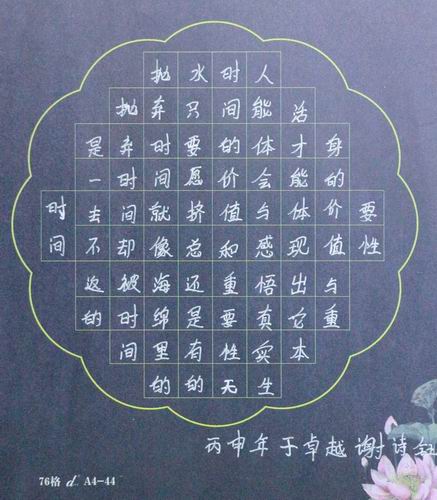 时间
是一去不返的
抛弃时间却被时间
抛弃时间就像海绵里的
水只要愿挤总还是有的
时间的价值和重要性无
人能体会与感悟真实生
活才能体现出它本
身的价值与重
要性
丙申年于卓越谢诗
76格 A4-44